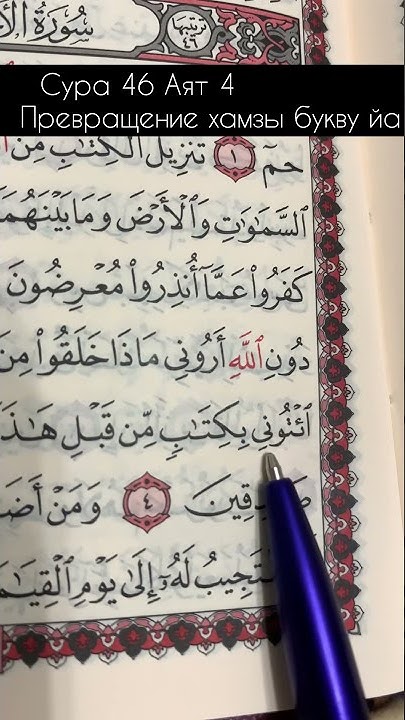 سُورَةُ
تَرْتِيبُهَا
٤٦
Сура 46 Аят 4
Превращение хамзы букву йа
حمٓ ١ تَنزِيلُ ٱلْكِتَٰبِ مِنَ
ٱلسَّمَٰوَٰتِ وَٱلْأَرْضَ وَمَا بَيْنَهُمَا
كَفَرُوا۟ عَمَّآ أُنذِرُوا۟ مُعْرِضُونَ
دُونِ ٱللَّهِ أَرُونِى مَاذَا خَلَقُوا۟ مِنَ
ٱئْتُونِى بِكِتَٰبٍ مِّن قَبْلِ هَٰذَا
صَٰدِقِينَ ٤ وَمَنْ أَضَ
لَهُۥٓ إِلَىٰ يَوْمِ ٱلْقِيَٰمَ